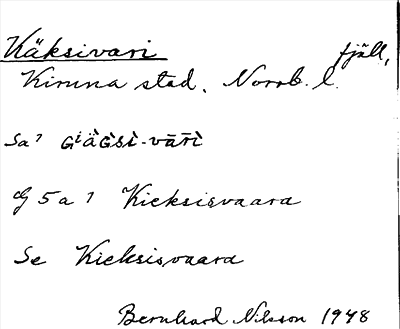 Käksivari fjäll,
Kiruna stad, Norrb. l.
Sa?
G 5 a ? Kieksisvaara
Se Kieksisvaara
Bernhard Nilsson 1948